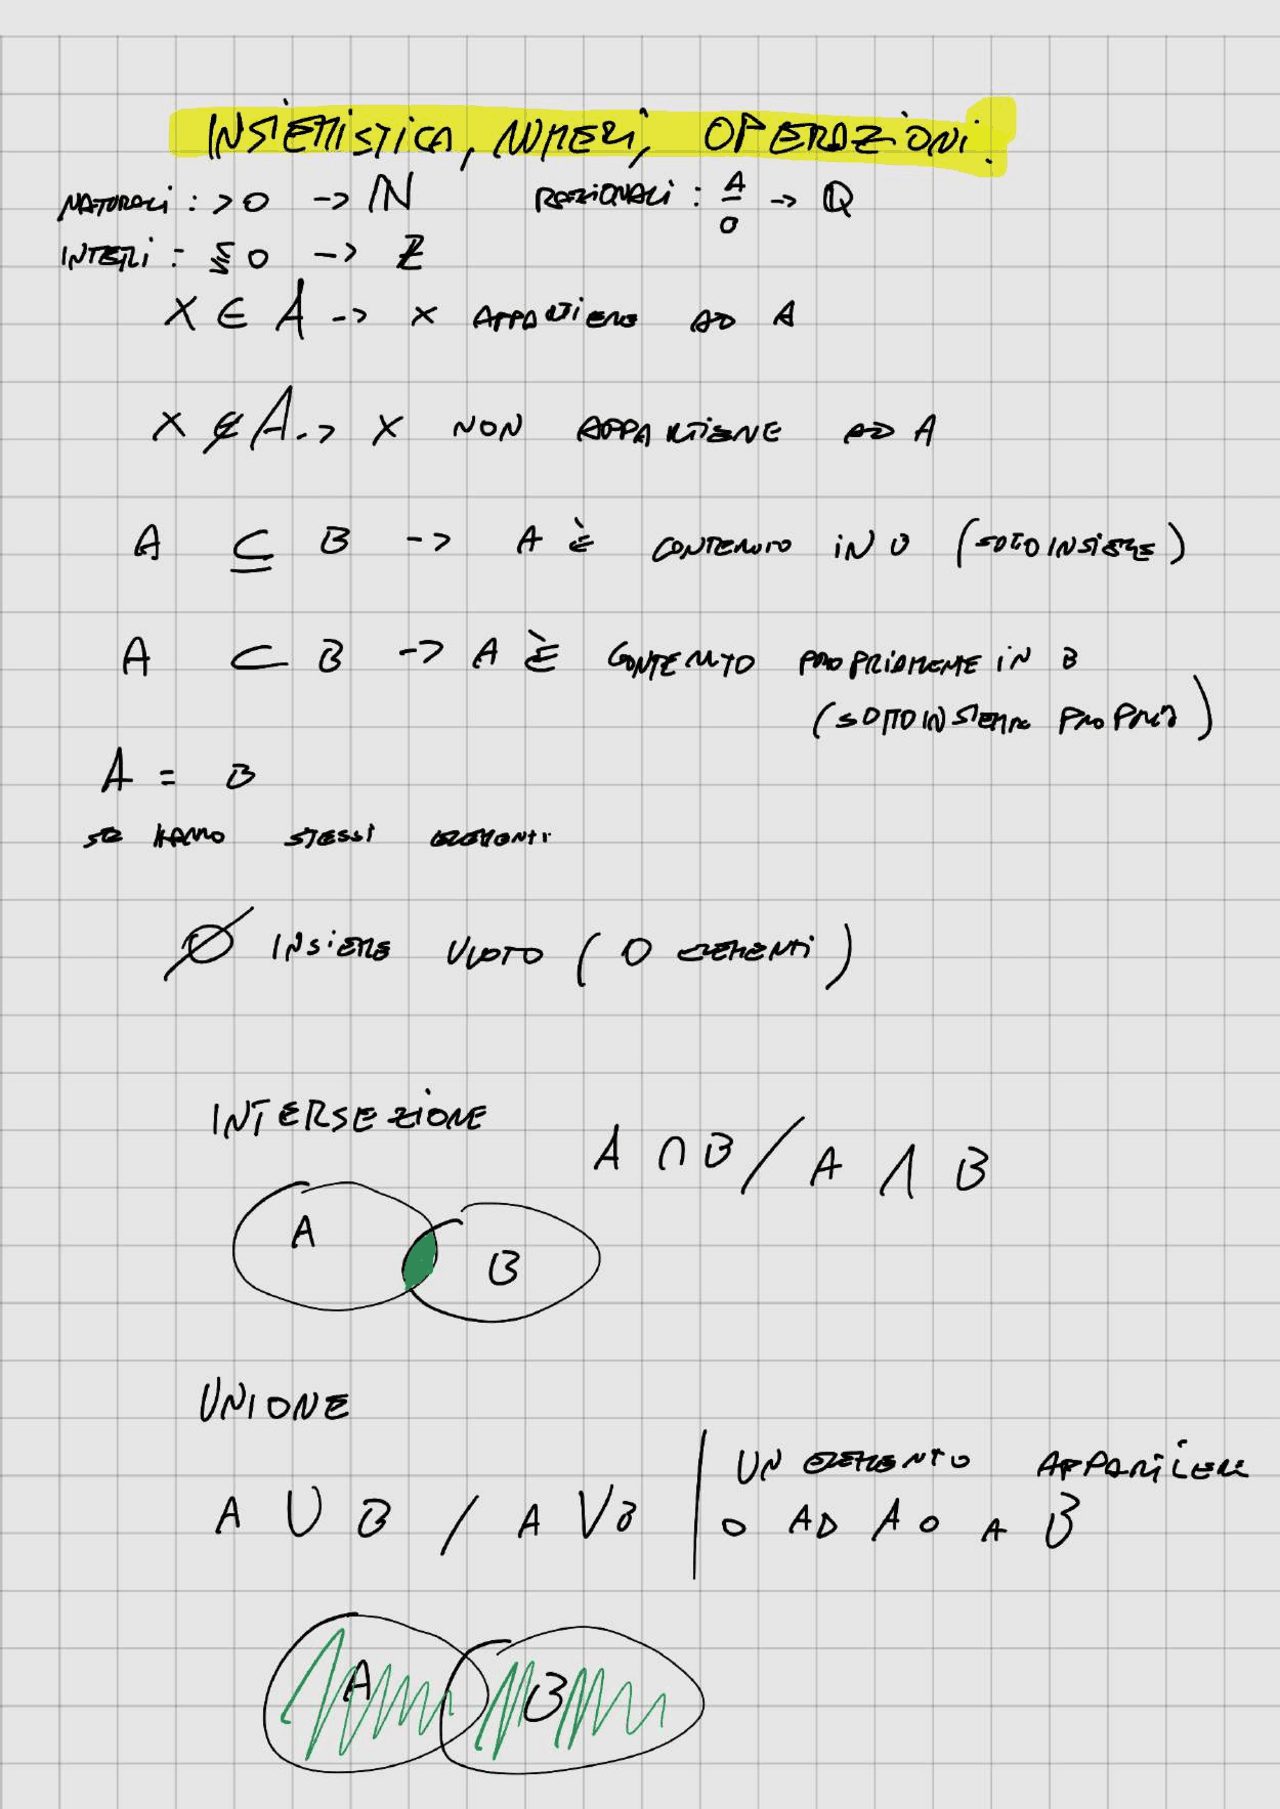 INSIEMISTICA, NUMERI, OPERAZIONI.
NATURALI : >0 -> ℕ RAZIONALI : A/B -> ℚ
INTERI : ⋚ 0 -> ℤ
X ∈ A -> X APPARTIENE AD A
X ∉ A -> X NON APPARTIENE AD A
A ⊆ B -> A È CONTENUTO IN B (SOTTOINSIEME)
A ⊂ B -> A È CONTENUTO PROPRIAMENTE IN B
(SOTTOINSIEME PROPRIO)
A = B
SE HANNO STESSI ELEMENTI
∅ INSIEME VUOTO ( 0 ELEMENTI )
INTERSEZIONE
A ∩ B / A ∧ B
A
B
UNIONE
UN ELEMENTO APPARTIENE
A ∪ B / A ∨ B | O AD A O A B
A B